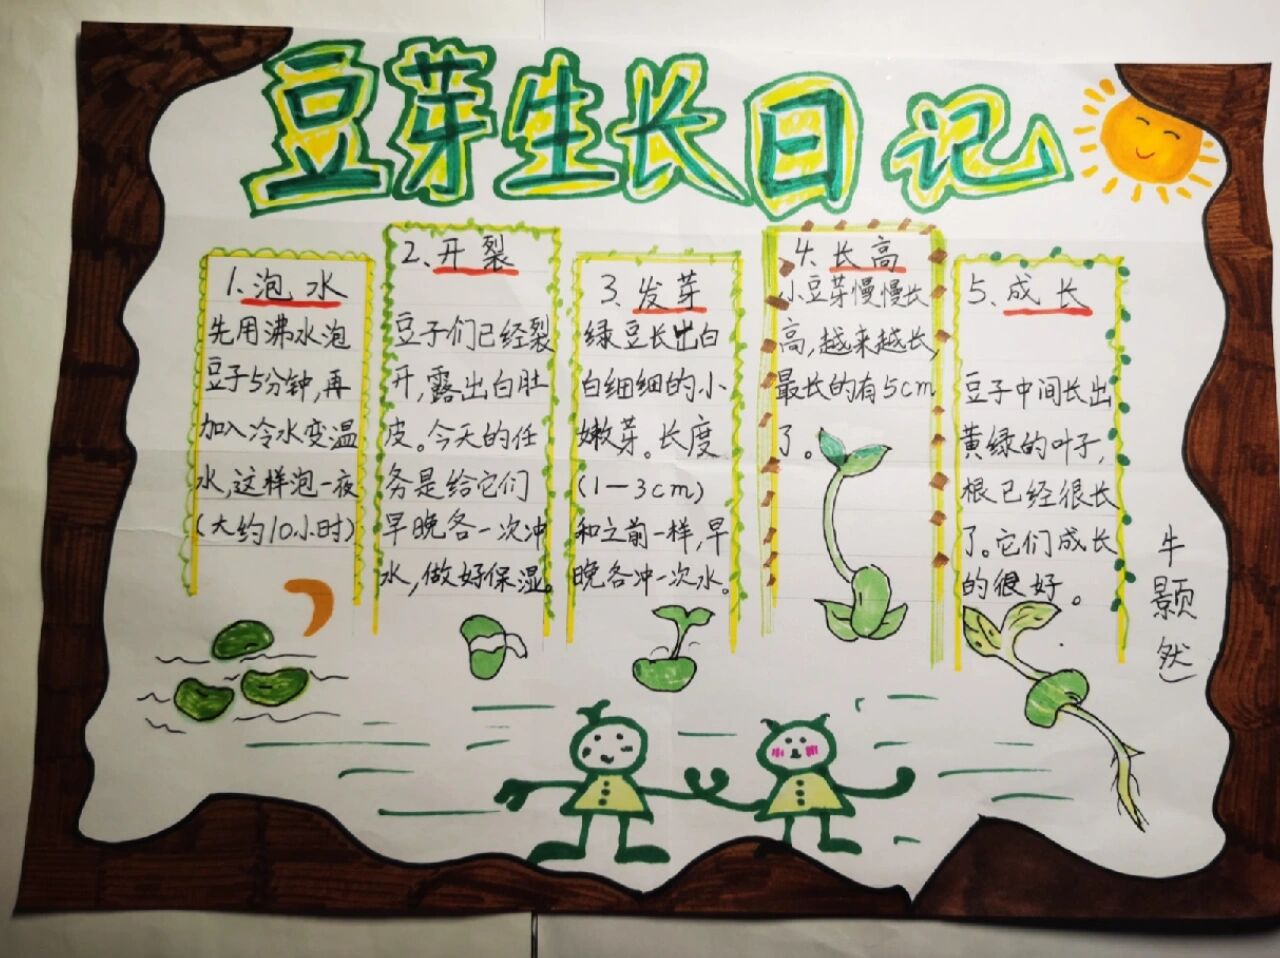 豆芽生长日记
1、泡水
先用沸水泡
豆子5分钟,再
加入冷水变温
水,这样泡一夜
(大约10小时)
2、开裂
豆子们已经裂
开,露出白肚
皮。今天的任
务是给它们
早晚各一次冲
水,做好保湿。
3、发芽
绿豆长出白
白细细的小
嫩芽。长度
(1—3cm)
和之前一样,早
晚各冲一次水。
4、长高
小豆芽慢慢长
高,越来越长,
最长的有5cm
了。
5、成长
豆子中间长出
黄绿的叶子,
根已经很长
了。它们成长
的很好。
牛
颢
然